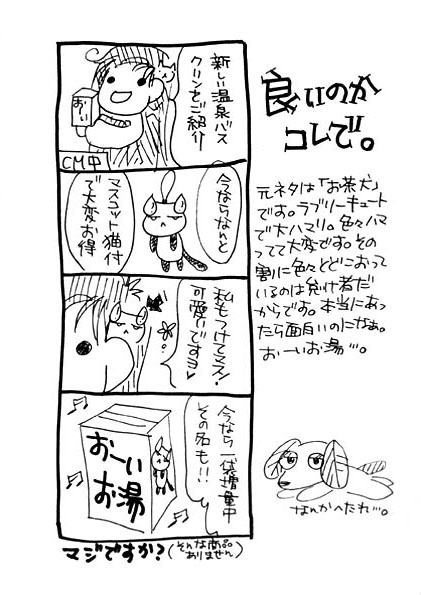 良いのか
コレで。
新しい温泉バス
クリンをご紹介
おーい
CM中
今ならなんと
マスコット猫付
で大変お得
私もつけてマス!
可愛いですヨ♥
今なら一袋増量中
その名も!!
おーい
お湯
マジですか?
(そんな商品
ありません)
元ネタは「お茶犬」
です。ラブリーキュート
で大ハマリ。色々ハマ
ってて大変です。その
割に色々とどこおって
いるのは怠け者だ
からです。本当にあっ
たら面白いのになぁ。
おーいお湯…。
なんかへたれ…。